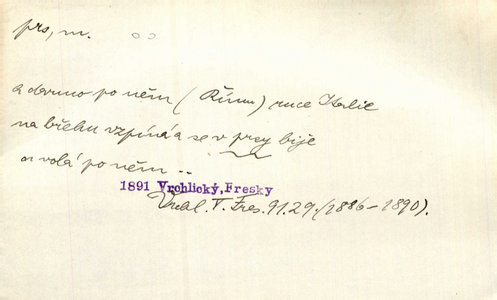 prs, m.
a darmo po něm (Římu) ruce Italie
na břehu vzpíná a se v prsy bije
a volá po něm ..
1891 Vrchlický, Fresky
Vrchl. V. Fres. 91.29. (1886–1890).